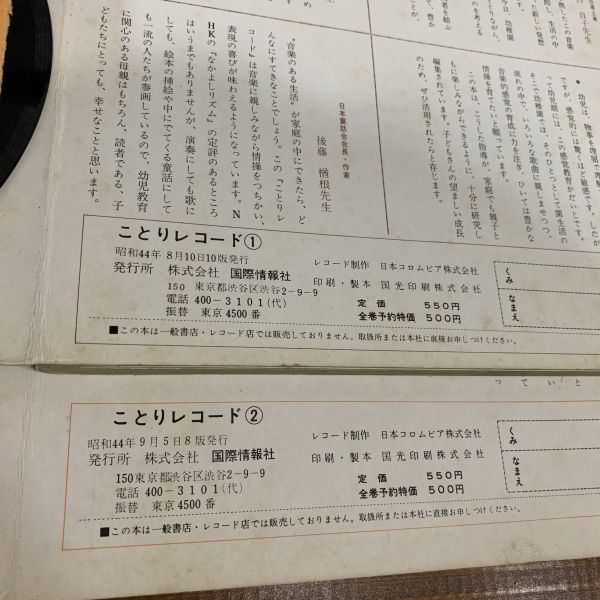 白子先生
*幼児は、物事を理解で理解
ですが、感覚的には驚くほど敏感です。したが
って幼児期には、この感覚教育がだいじです。
そこで幼稚園では、そのひとつとして園生活の
流れの中で、いろいろな歌曲に親しませつつ、
音楽的感覚の育成に力を注ぎ、ひいては豊かな
情操を育てたいと願っています。
この本は、こうした指導が、家庭でも親子と
もに楽しみながらできるように、十分に研究し
編集されています。子どもさんの望ましい成長
のため、ぜひ活用されたらと存じます。
日本童話会会長・作家
後藤 楢根先生
“音楽のある生活”が家庭の中にできたら、ど
んなにすてきなことでしょう。この『ことりレ
コード』は音楽に親しみながら情操をつちかい、
表現の喜びが味わえるようになっています。N
HKの『なかよしリズム』の定評のあるところ
はいうまでもありませんが、演奏にしても歌に
しても、絵本の挿絵や中にでてくる童話にして
も一流の人たちが参画しているので、幼児教育
に関心のある母親はもちろん、読者である、子
どもたちにとっても、幸せなことと思います。
ことりレコード①
昭和44年 8月10日10版発行
発行所 株式会社 国際情報社
150 東京都渋谷区渋谷2-9-9
電話 400-3101(代)
振替 東京4500番
レコード制作 日本コロムビア株式会社
印刷・製本 国光印刷株式会社
定価 550円
全巻予約特価 500円
くみ
なまえ
■この本は一般書店・レコード店では販売しておりません。取扱所または本社に直接お申しつけください。
ことりレコード②
昭和44年9月5日8版発行
発行所 株式会社 国際情報社
150東京都渋谷区渋谷2-9-9
電話 400-3101(代)
振替 東京4500番
レコード制作 日本コロムビア株式会社
印刷・製本 国光印刷株式会社
定価 550円
全巻予約特価 500円
くみ
なまえ
■この本は一般書店・レコード店では販売しておりません。取扱所または本社に直接お申しつけください。